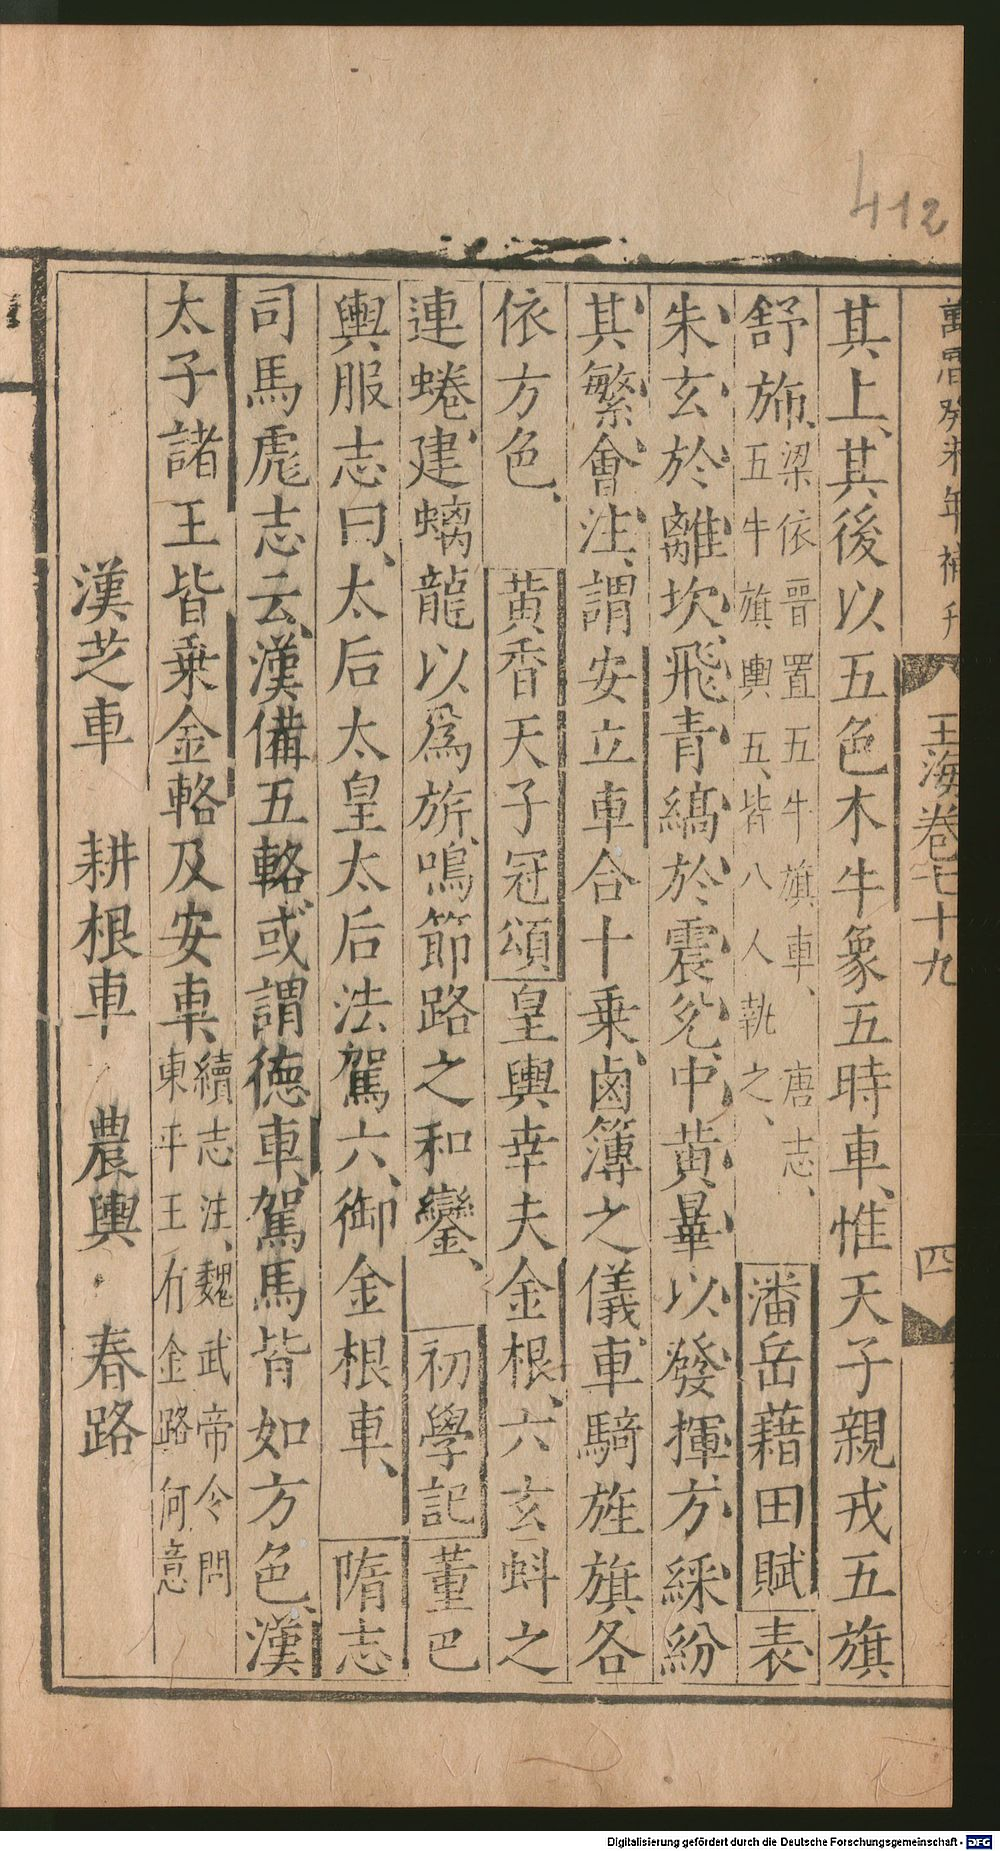 412
萬曆癸未年補刋
玉海卷七十九
四
其上其後以五色木牛象五時車惟天子親戎五旗
舒斾梁依晉置五牛旗車唐志
五牛旗輿五皆八人執之潘岳藉田賦表
朱玄於離坎飛青縞於震兊中黃曅以發揮方綵紛
其繁會注謂安立車合十乗鹵簿之儀車騎旌旗各
依方色黃香天子冠頌皇輿幸夫金根六玄蚪之
連蜷建螭龍以爲旂鳴節路之和鑾初學記董巴
輿服志曰太后太皇太后法駕六御金根車隋志
司馬彪志云漢備五輅或謂德車駕馬皆如方色漢
太子諸王皆乗金輅及安車續志注魏武帝令問
東平王有金路何意
漢芝車 耕根車 農輿 春路
Digitalisierung gefördert durch die Deutsche Forschungsgemeinschaft - DFG